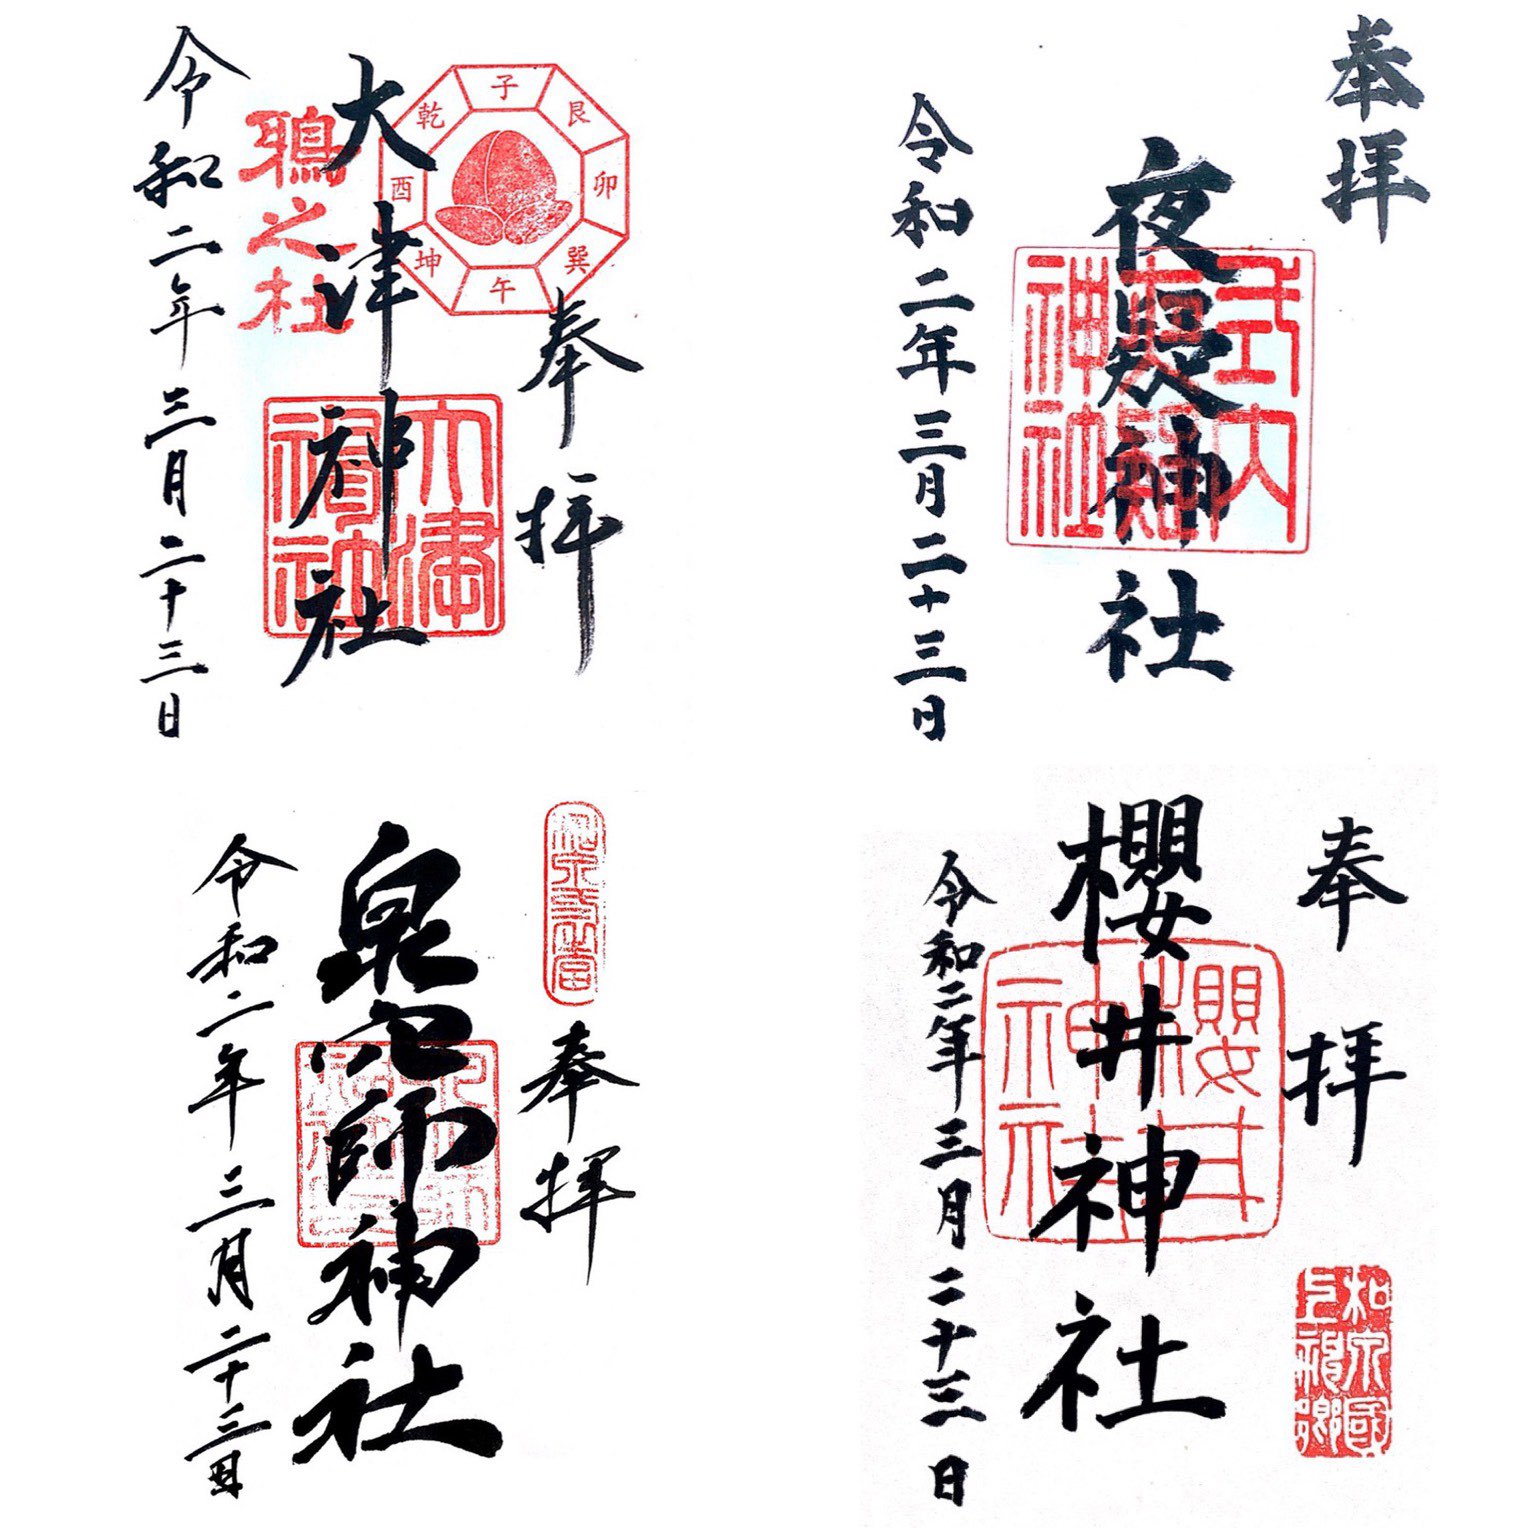 奉拝
子艮卯巽午坤酉乾
大津神社
大津神社
之杜
令和二年三月二十三日
奉拝
夜疑神社
式内夜疑神社
令和二年三月二十三日
奉拝
泉穴師神社
令和二年三月二十三日
奉拝
和泉國上神郷
櫻井神社
櫻井神社
令和二年三月二十三日